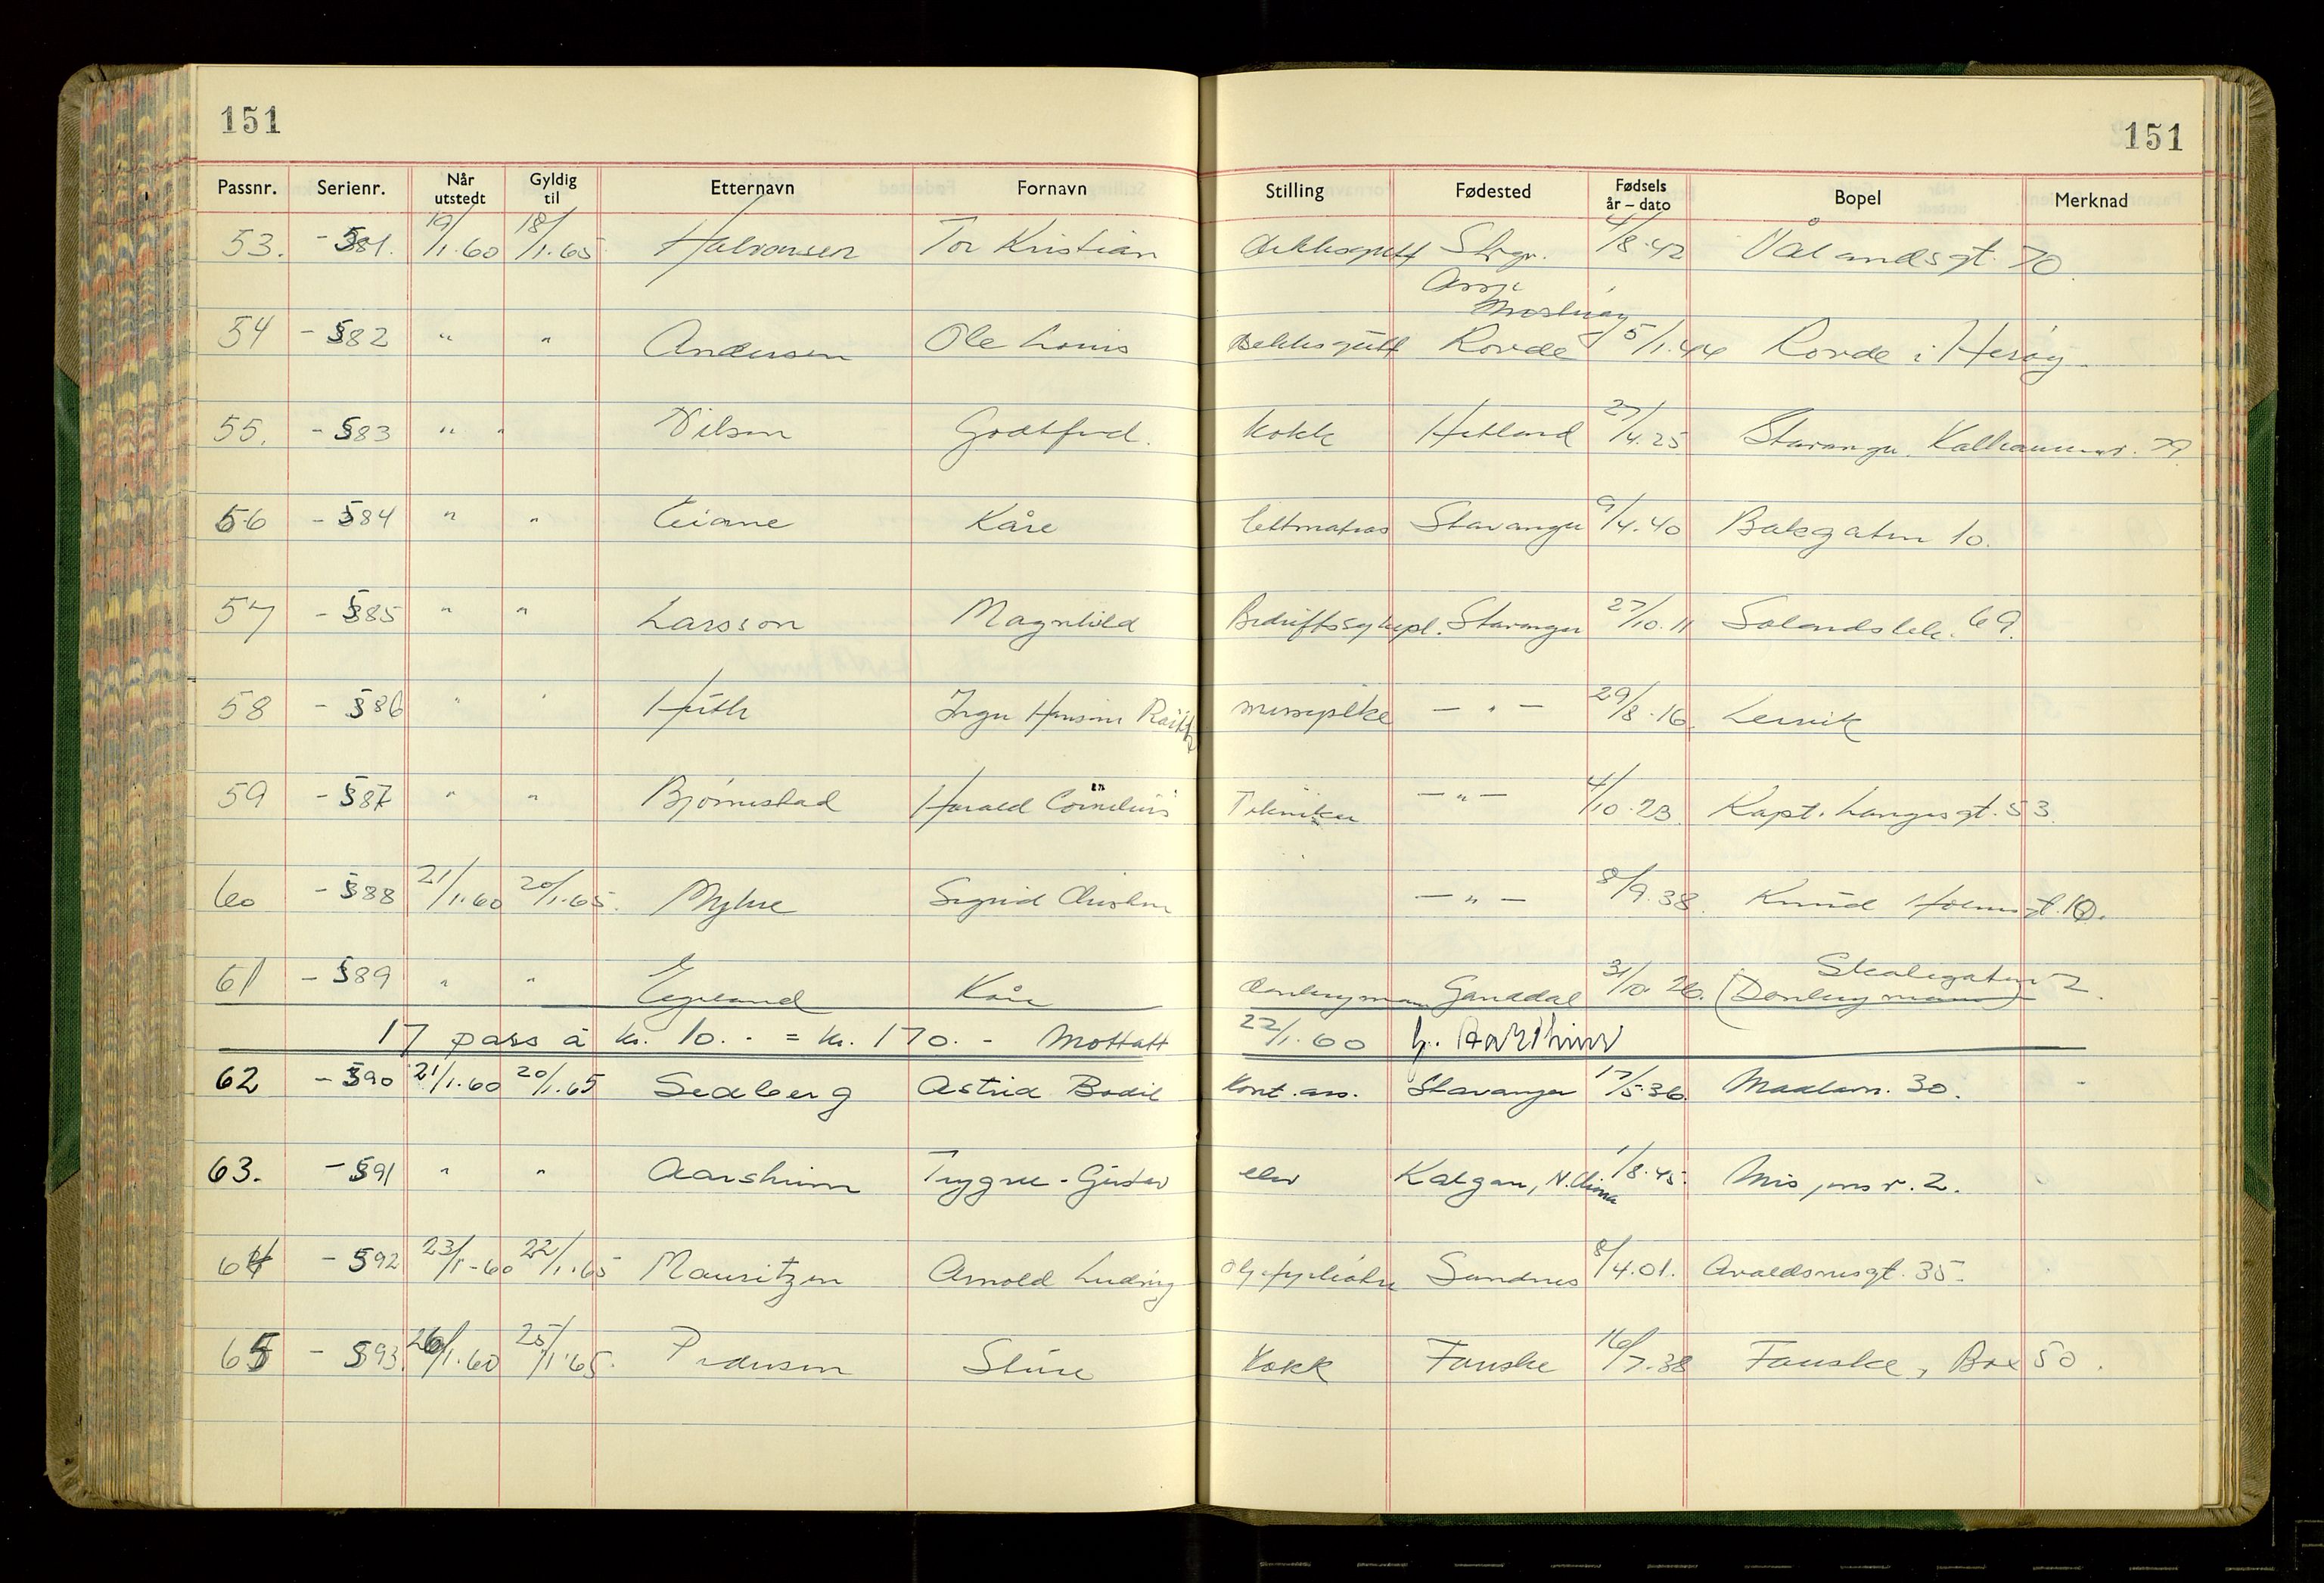 151 151
Passnr. Serienr. Når utstedt Gyldig til Etternavn Fornavn Stilling Fødested Fødsels år – dato Bopel Merknad
53. - 581. 19/1.60 18/1.65 Halvorsen Tor Kristian dekksgutt Stvgr. 4/8.42 Vålandsgt. 70.
54 - 582 " " Andersen Ole Louis Dekksgutt Rovde 5/1.44 Rovde i Herøy
55. - 583 " " Nilsen Godtfred. kokk Hetland 27/4.25 Stavanger. Kalhammerv. 79
56 - 584 " " Eiane Kåre lettmatros Stavanger 9/4.40 Bakgaten 10.
57 - 585 " " Larsson Magnhild Bedriftssykepl. Stavanger 27/10.11 Solandsbk. 69.
58 - 586 " " Hüth Inger Hansine messepike — " — 29/8.16. Lervik
59 - 587 " " Bjørnestad Harald Cornelius Tekniker — " — 4/10.23. Kapt. Langesgt. 53.
60 - 588 21/1.60 20/1.65. Myhre Sigrid — " — 8/9.38. Knud Holmsgt. 10.
61 - 589 " " Egeland Kåre Ganddal 31/10.26. Skolegaten 2.
17 pass à kr. 10.- = kr. 170.- Mottatt 22/1.60
62 - 590 21/1.60 20/1.65 Sedberg Astrid Bodil Kont.ass. Stavanger 17/5.36. Madlav. 30.
63. - 591 " " Aarsheim Trygve - Gustav elev Kalgan, N. China 1/8.45. Misjonsv. 2.
64 - 592 23/1-60 22/1.65 Mauritzen Arnold Ludvig Sandnes 8/4.01. Avaldsnesgt. 35.
65 - 593. 26/1.60 25/1.65. Pedersen Sture Kokk Fauske 16/7.38 Fauske, Box 50.